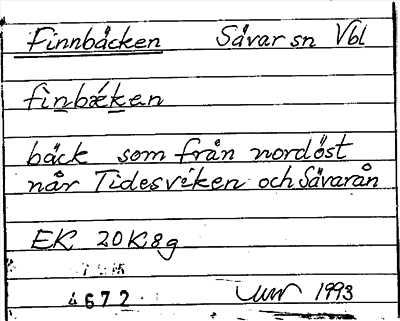 Finnbäcken Sävar sn Vbl
fìnbǽken
bäck som från nordöst
når Tidesviken och Sävarån
EK 20K8g
4672 1993